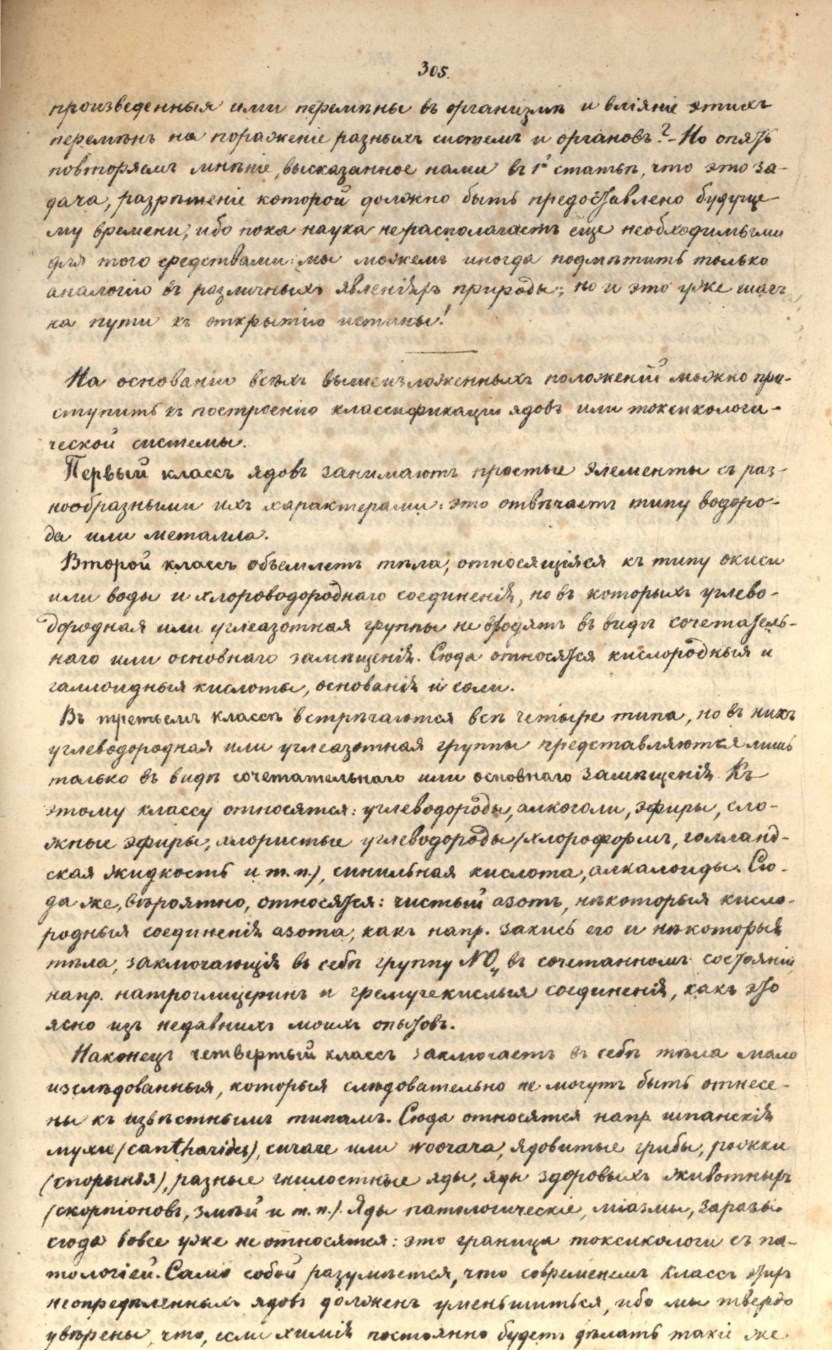 305.
произведенныя ими перемѣны въ организмѣ и вліяніе этихъ
перемѣнъ на пораженіе разныхъ системъ и органовъ?- Но опять
повторяемъ мнѣніе, высказанное нами въ 1й статьѣ, что это за-
дача, разрѣшеніе которой должно быть предоставлено будуще-
му времени; ибо пока наука не располагаетъ еще необходимыми
для того средствами: мы можемъ иногда подмѣтить только
аналогію въ различныхъ явленіяхъ природы; но и это уже шагъ
на пути къ открытію истины!
На основаніи всѣхъ вышеизложенныхъ положеній можно при-
ступить къ построенію классификаціи ядовъ или токсикологи-
ческой системы.
Первый классъ ядовъ занимаютъ простые элементы съ раз-
нообразными ихъ характерами: это отвѣчаетъ типу водоро-
да или металла.
Второй классъ объемлетъ тѣла, относящіяся къ типу окиси
или воды и хлороводороднаго соединенія, но въ которыхъ углево-
дородная или углеазотная группы не входятъ въ видѣ сочетатель-
наго или основнаго замѣщенія. Сюда относятся кислородныя и
галлоидныя кислоты, основанія и соли.
Въ третьемъ классѣ встрѣчаются всѣ четыре типа, но въ нихъ
углеводородная или углеазотная группы представляются лишь
только въ видѣ сочетательнаго или основнаго замѣщенія. Къ
этому классу относятся: углеводороды, алкоголи, эфиры, сло-
жные эфиры, хлористые углеводороды (хлороформъ, голланд-
ская жидкость и т. п.), синильная кислота, алкалоиды. Сю-
да же, вѣроятно, относятся: чистый азотъ, нѣкоторыя кисло-
родныя соединенія азота, какъ напр. закись его и нѣкоторыя
тѣла, заключающія въ себѣ группу NO₄ въ сочетанномъ состояніи
напр. натроглицеринъ и гремучекислыя соединенія, какъ это
ясно изъ недавнихъ моихъ опытовъ.
Наконецъ четвертый классъ заключаетъ въ себѣ тѣла мало
изслѣдованныя, которыя слѣдовательно не могутъ быть отнесе-
ны къ извѣстнымъ типамъ. Сюда относятся напр. шпанскія
мухи (cantharides), curare или woorara, ядовитые грибы, рожки
(спорынья), разные гнилостные яды, яды здоровыхъ животныхъ
(скорпіоновъ, змѣй и т. п.). Яды патологическіе, міазмы, заразы
сюда вовсе уже не относятся: это граница токсикологіи съ па-
тологіей. Само собой разумѣется, что современемъ классъ этихъ
неопредѣленныхъ ядовъ долженъ уменьшиться, ибо мы твердо
увѣрены, что, если химія постоянно будетъ дѣлать такіе же